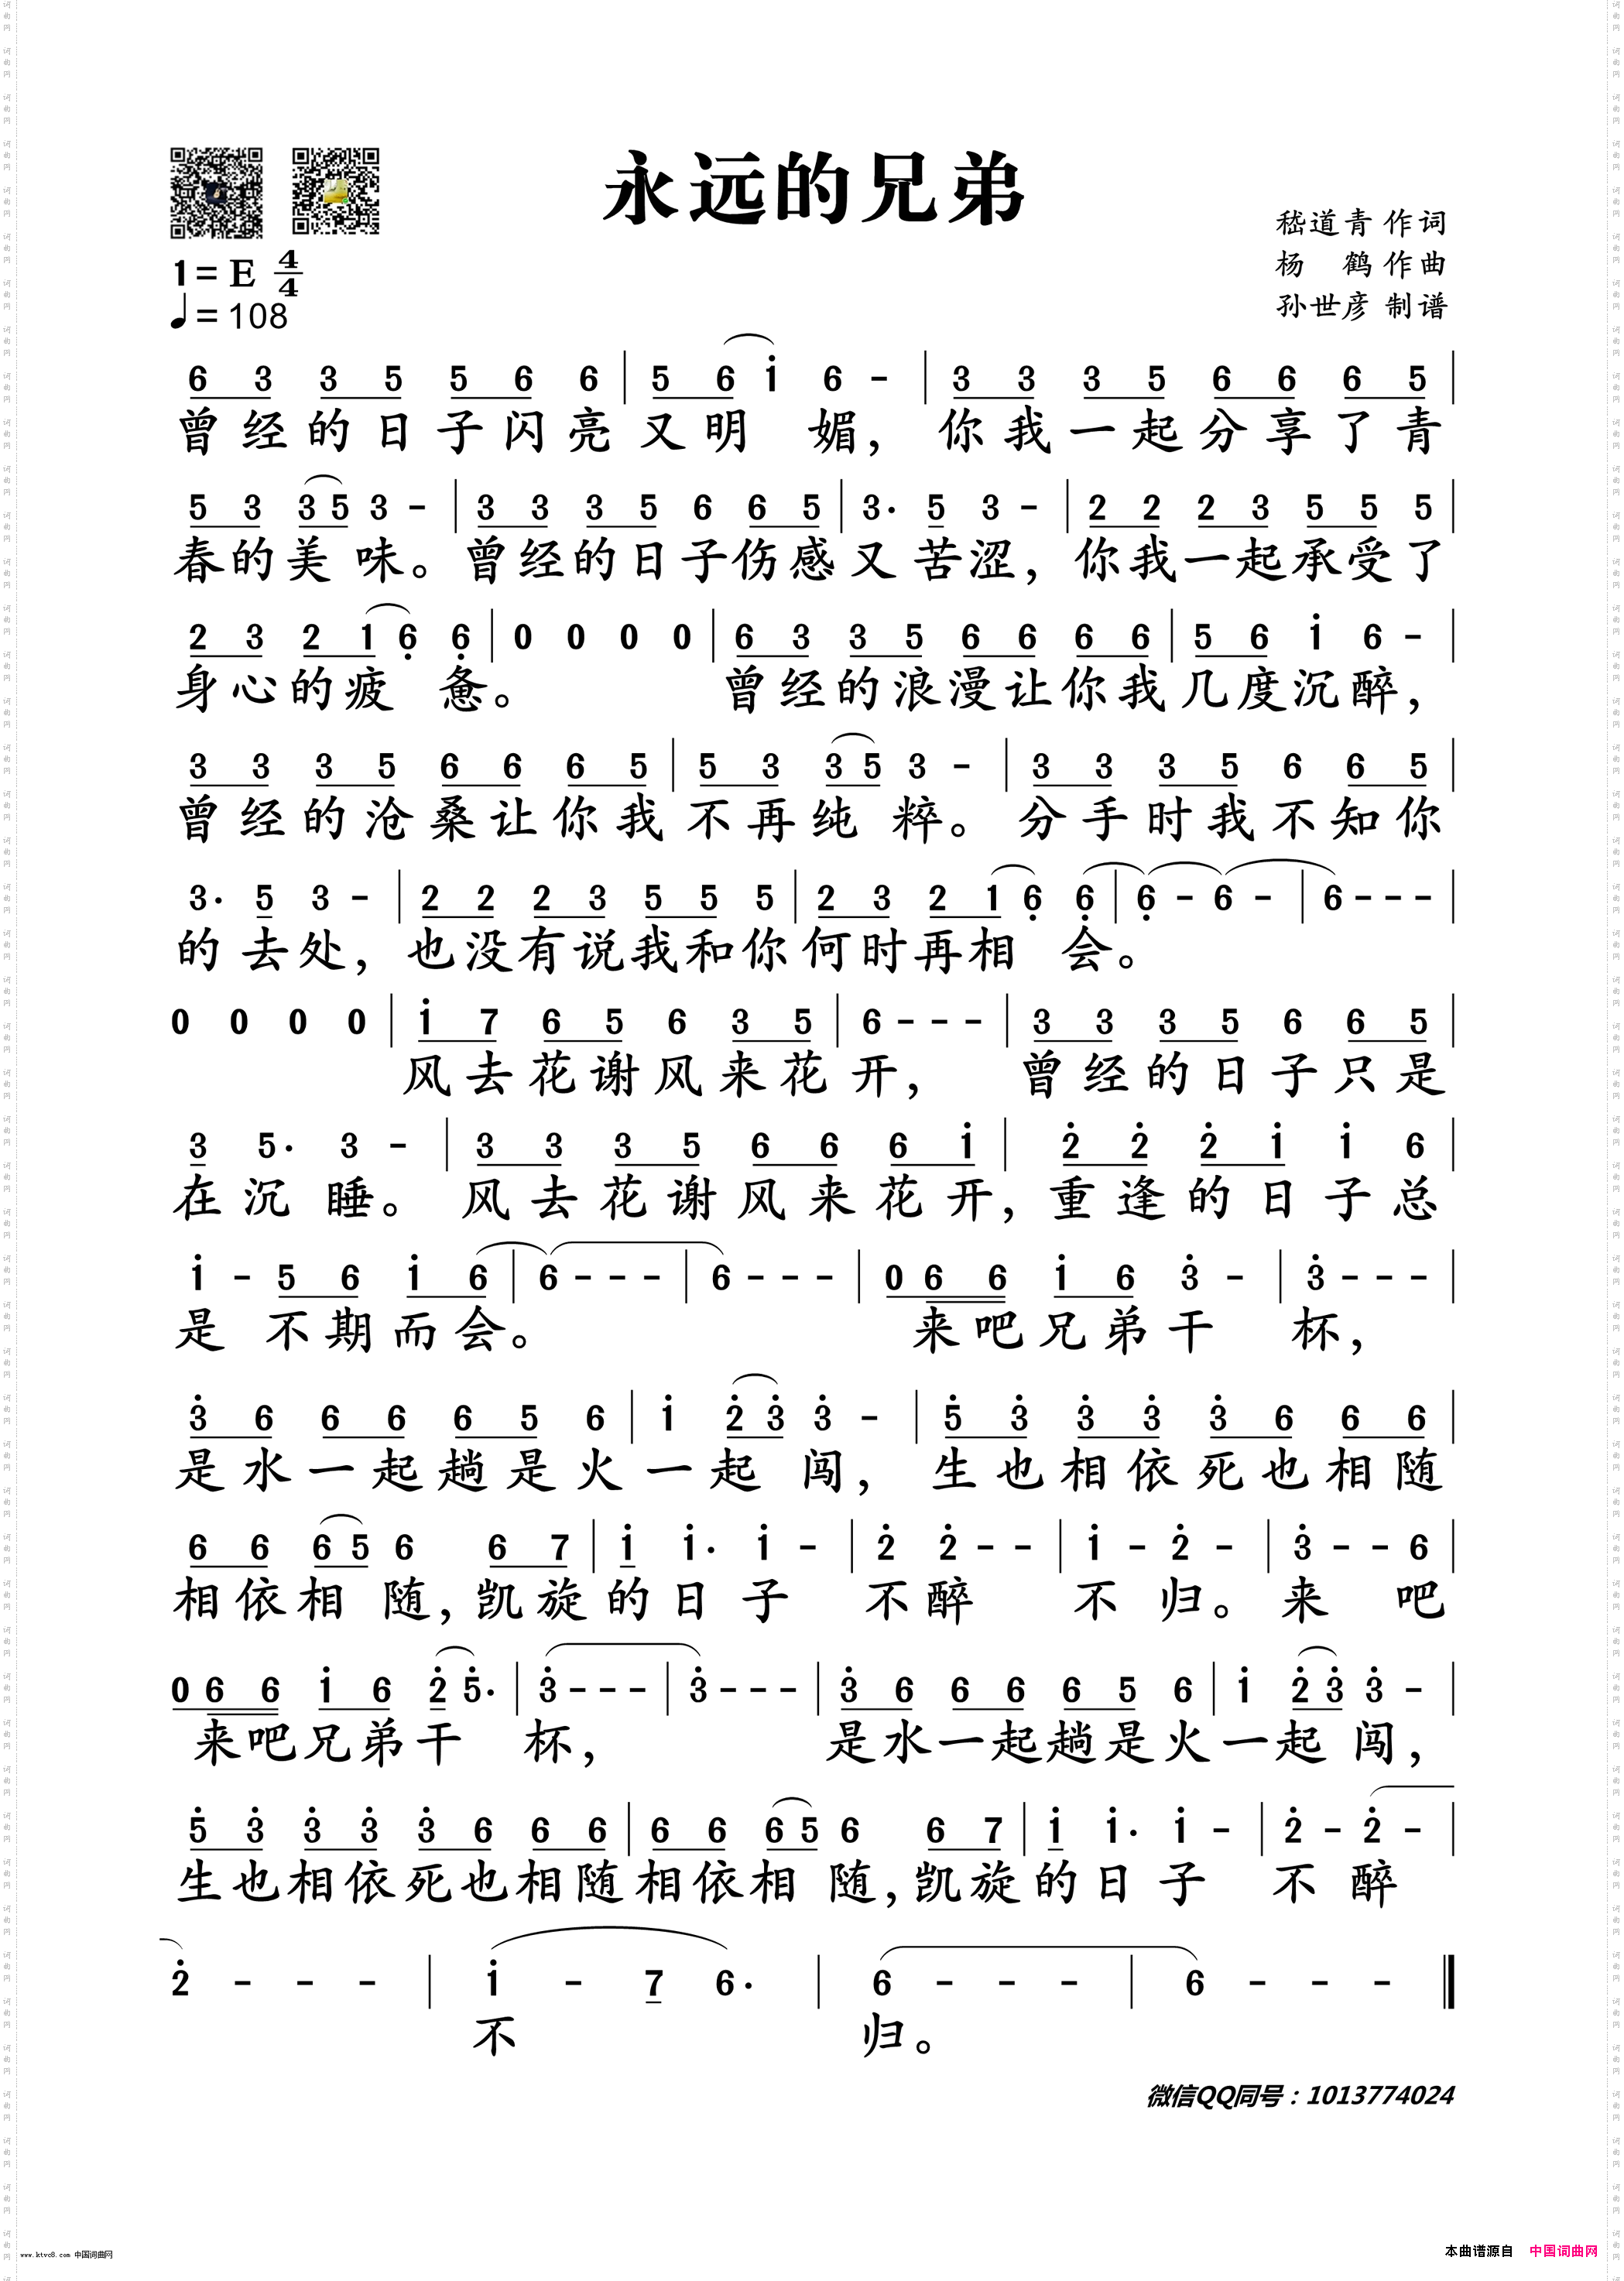 永远的兄弟
嵇道青 作词
杨 鹤 作曲
孙世彦 制谱
1= E 4/4
♩= 108
6 3 3 5 5 6 6 | 5 6 i 6 - | 3 3 3 5 6 6 6 5 |
曾经的日子闪亮又明 媚，你我一起分享了青
5 3 3 5 3 - | 3 3 3 5 6 6 5 | 3. 5 3 - | 2 2 2 3 5 5 5 |
春的美 味。曾经的日子伤感又苦涩，你我一起承受了
2 3 2 1 6̣ 6̣ | 0 0 0 0 | 6 3 3 5 6 6 6 6 | 5 6 i 6 - |
身心的疲 惫。 曾经的浪漫让你我几度沉醉，
3 3 3 5 6 6 6 5 | 5 3 3 5 3 - | 3 3 3 5 6 6 5 |
曾经的沧桑让你我不再纯 粹。分手时我不知你
3. 5 3 - | 2 2 2 3 5 5 5 | 2 3 2 1 6̣ 6̣ | 6̣ - 6 - | 6 - - - |
的去处，也没有说我和你何时再相 会。
0 0 0 0 | i 7 6 5 6 3 5 | 6 - - - | 3 3 3 5 6 6 5 |
风去花谢风来花开， 曾经的日子只是
3 5. 3 - | 3 3 3 5 6 6 6 i | 2̇ 2̇ 2̇ i i 6 |
在沉 睡。风去花谢风来花开，重逢的日子总
i - 5 6 i 6 | 6 - - - | 6 - - - | 0 6 6 i 6 3̇ - | 3̇ - - - |
是 不期而会。 来吧兄弟干 杯，
3̇ 6 6 6 6 5 6 | i 2̇ 3̇ 3̇ - | 5̇ 3̇ 3̇ 3̇ 3̇ 6 6 6 |
是水一起趟是火一起 闯， 生也相依死也相随
6 6 6 5 6 6 7 | i i. i - | 2̇ 2̇ - - | i - 2̇ - | 3̇ - - 6 |
相依相 随，凯旋的日子 不醉 不归。来 吧
0 6 6 i 6 2̇ 5̇. | 3̇ - - - | 3̇ - - - | 3̇ 6 6 6 6 5 6 | i 2̇ 3̇ 3̇ - |
来吧兄弟干 杯， 是水一起趟是火一起 闯，
5̇ 3̇ 3̇ 3̇ 3̇ 6 6 6 | 6 6 6 5 6 6 7 | i i. i - | 2̇ - 2̇ - |
生也相依死也相随相依相 随，凯旋的日子 不醉
2̇ - - - | i - 7 6. | 6 - - - | 6 - - - ‖
不 归。
微信QQ同号：1013774024
www.ktvc8.com 中国词曲网
本曲谱源自 中国词曲网